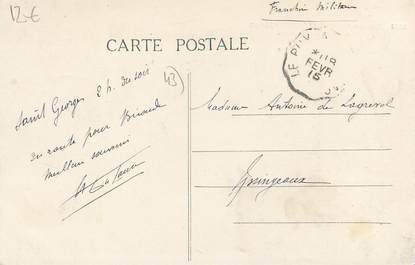 12€
Franchise Militaire
CARTE POSTALE
LE PUY
18
FEVR
15
43
Saint Georges 2 h. du soir
En route pour
meilleurs souvenirs
Madame Antoine de Lagrevol
Yssingeaux